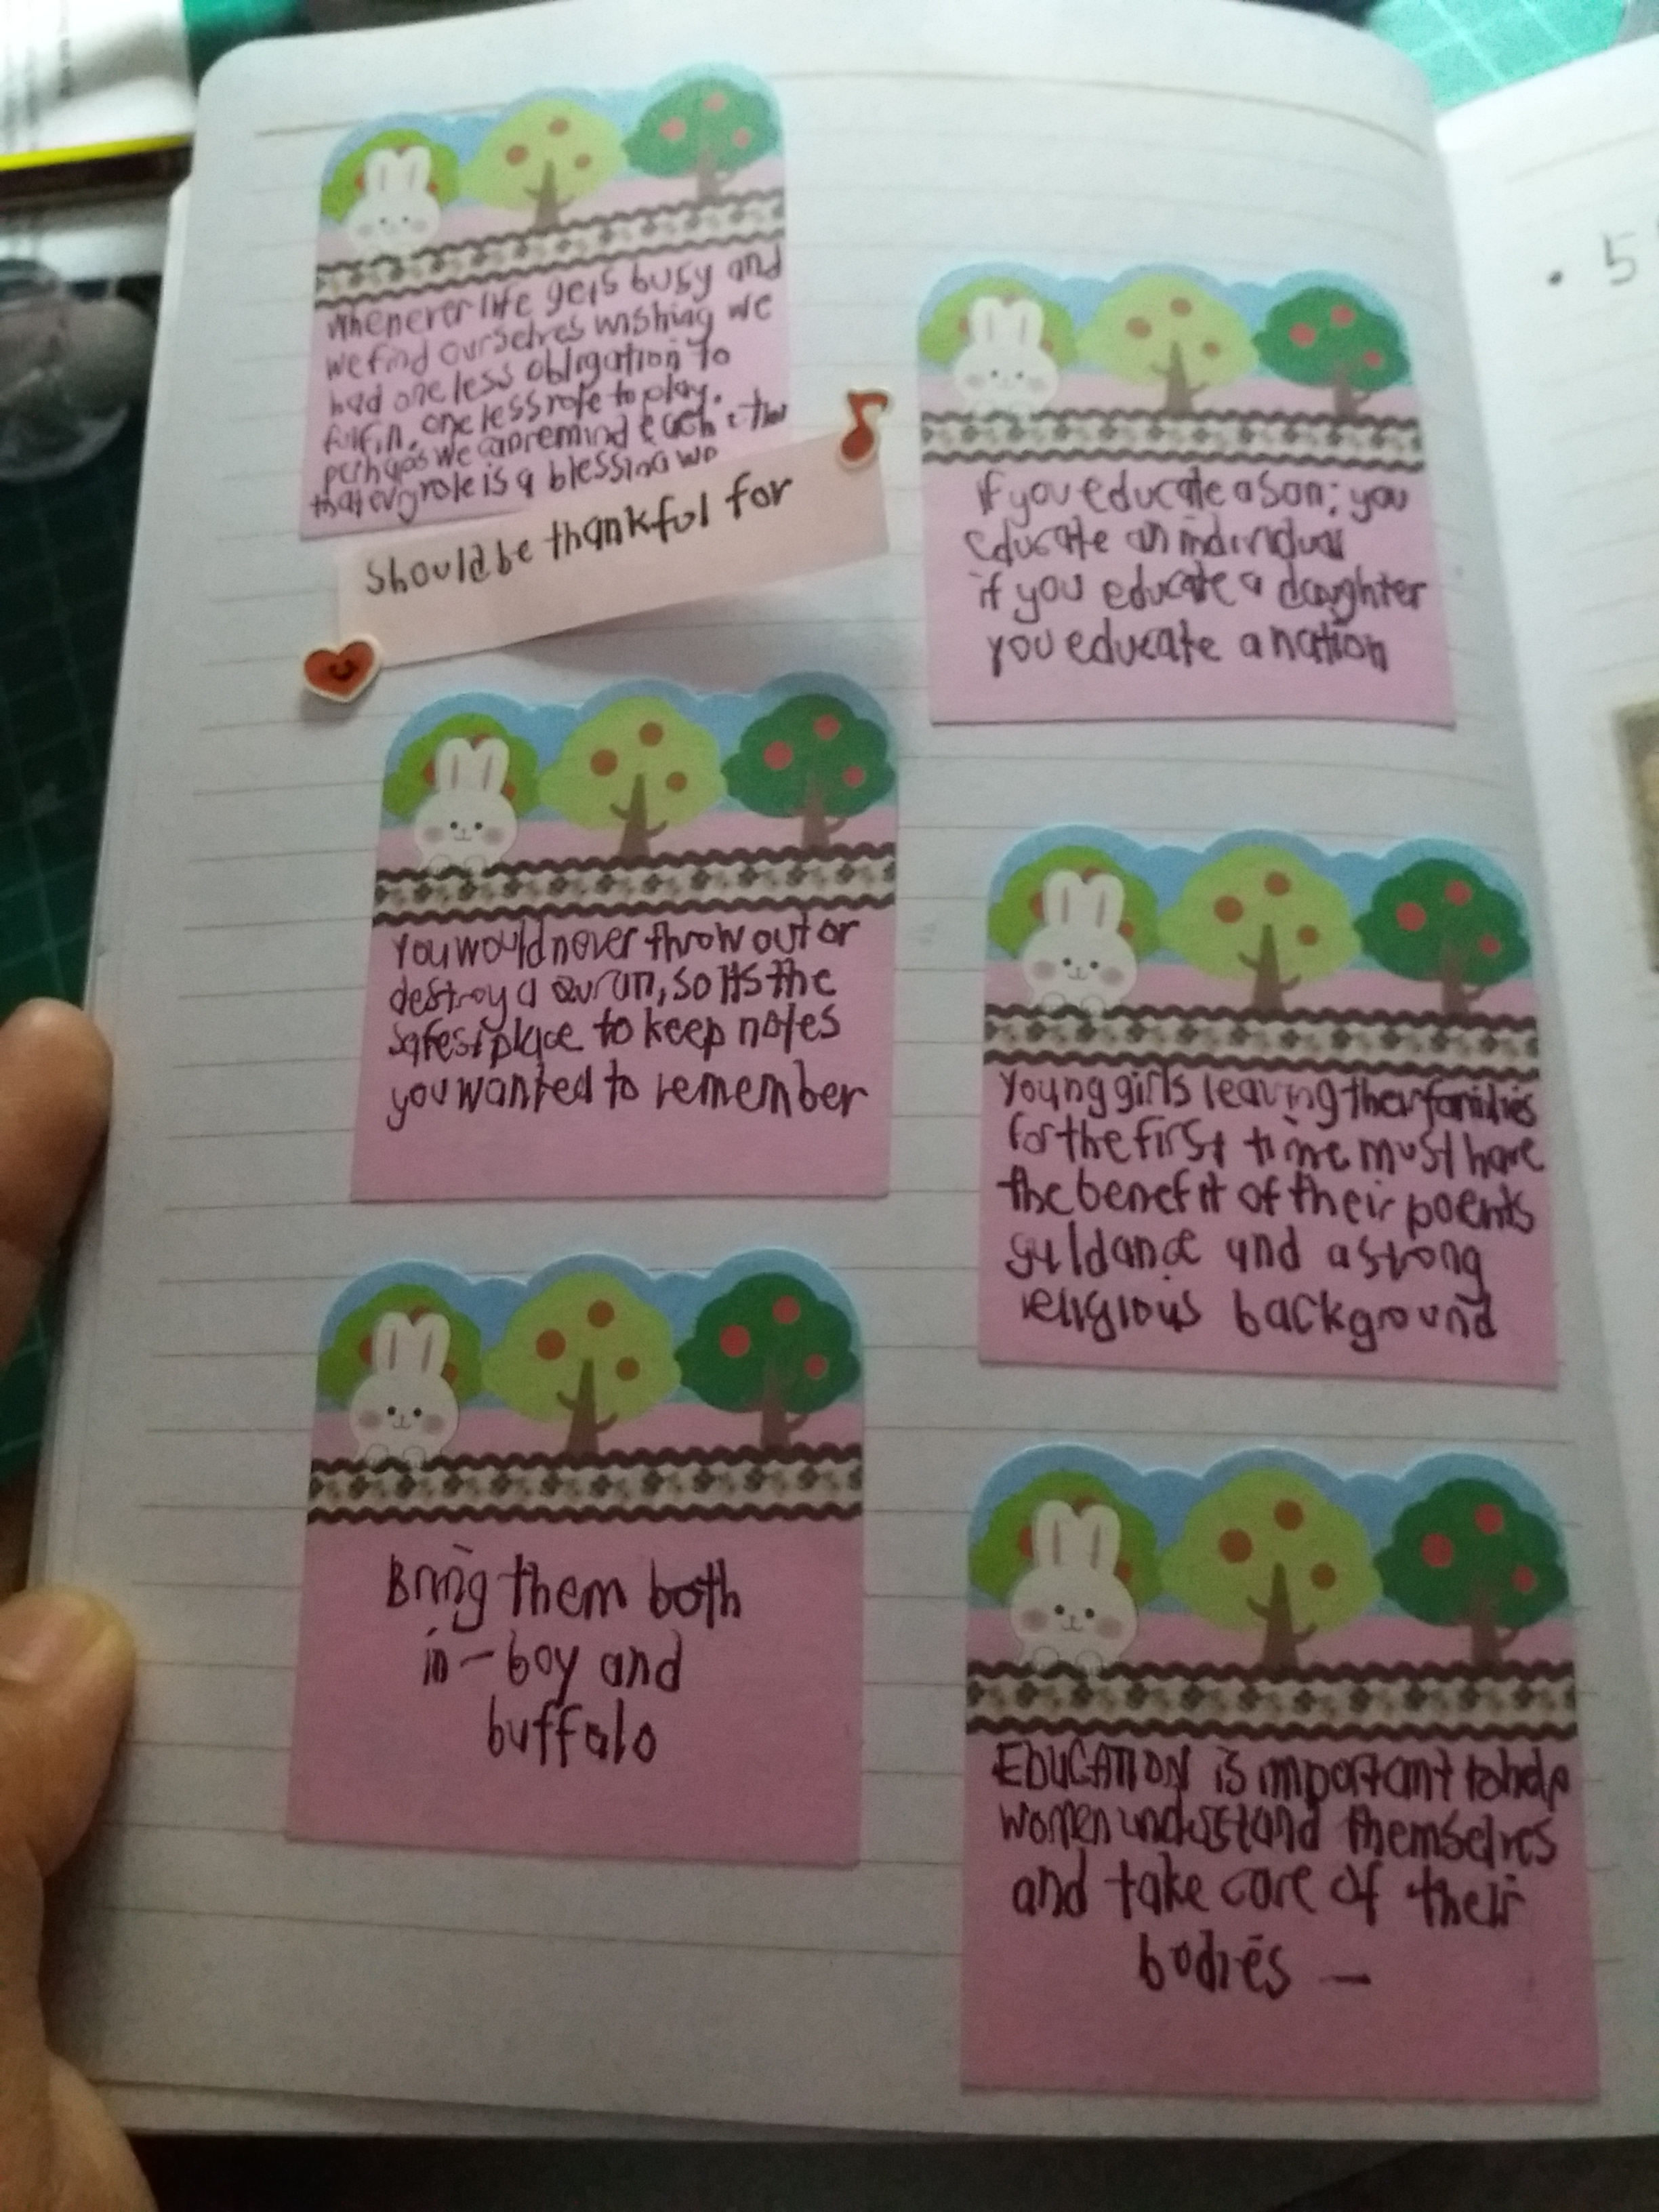 Whenever life gets busy and
we find ourselves wishing we
had one less obligation to
fulfill, one less role to play.
perhaps we can remind each other
that evry role is a blessing we
should be thankful for
if you educate a son; you
educate an individual
if you educate a daughter
you educate a nation
You would never throw out or
destroy a Quran, so its the
safest place to keep notes
you wanted to remember
Young girls leaving their families
for the first time must have
the benefit of their poents
guidance and a strong
religious background
Bring them both
in - boy and
buffalo
EDUCATION is important to help
women undustand themselves
and take care of their
bodies —
• 5